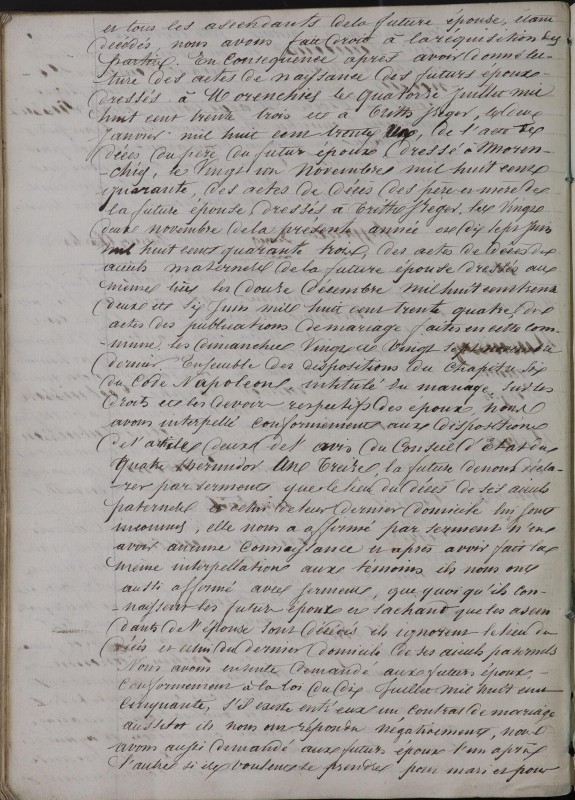 et tous les ascendants de la future épouse, étant
décédés nous avons fait droit à la réquisition des
parties. En conséquence après avoir donné lec-
-ture des actes de naissance des futurs époux
dressés à Morenchies le quatorze juillet mil
huit cent trente trois et à Trith St Léger, le
janvier mil huit cent trente, de l'acte de
décès du père du futur époux dressé à Moren-
-chies, le vingt un novembre mil huit cent
quarante, des actes de décès des père et mère de
la future épouse dressés à Trith St Léger, les vingt
deux novembre de la présente année et dix sept juin
mil huit cent quarante trois, des actes de décès des
aïeuls maternels de la future épouse dressés aux
mêmes lieu les douze décembre mil huit cent trente
deux et six juin mil huit cent trente quatre, des
actes des publications de mariage faites en cette com-
-mune, les dimanches vingt et vingt sept
dernier Ensemble des dispositions du chapitre six
du Code Napoléon intitulé du mariage, sur les
droits et les devoirs respectifs des époux, nous
avons interpellé conformément aux dispositions
de l'article deux de l'avis du Conseil d'État du
quatre thermidor an treize, la future de nous décla-
rer par serment que le lieu du décès de ses aïeuls
paternels et celui de leur dernier domicile lui sont
inconnus, elle nous a affirmé par serment n'en
avoir aucune connaissance et après avoir fait la
même interpellation aux témoins ils nous ont
aussi affirmé avec serment, que quoi qu'ils con-
-naissent les futurs époux et sachant que les ascen-
dants de l'épouse sont décédés ils ignorent le lieu du
décès et celui du dernier domicile de ses aïeuls paternels
Nous avons ensuite demandé aux futurs époux,
conformément à la loi du dix juillet mil huit cent
cinquante, s'il existe entr'eux un contrat de mariage
aussitôt ils nous ont répondu négativement, nous
avons aussi demandé aux futurs époux l'un après
l'autre si ils veulent se prendre pour mari et pour